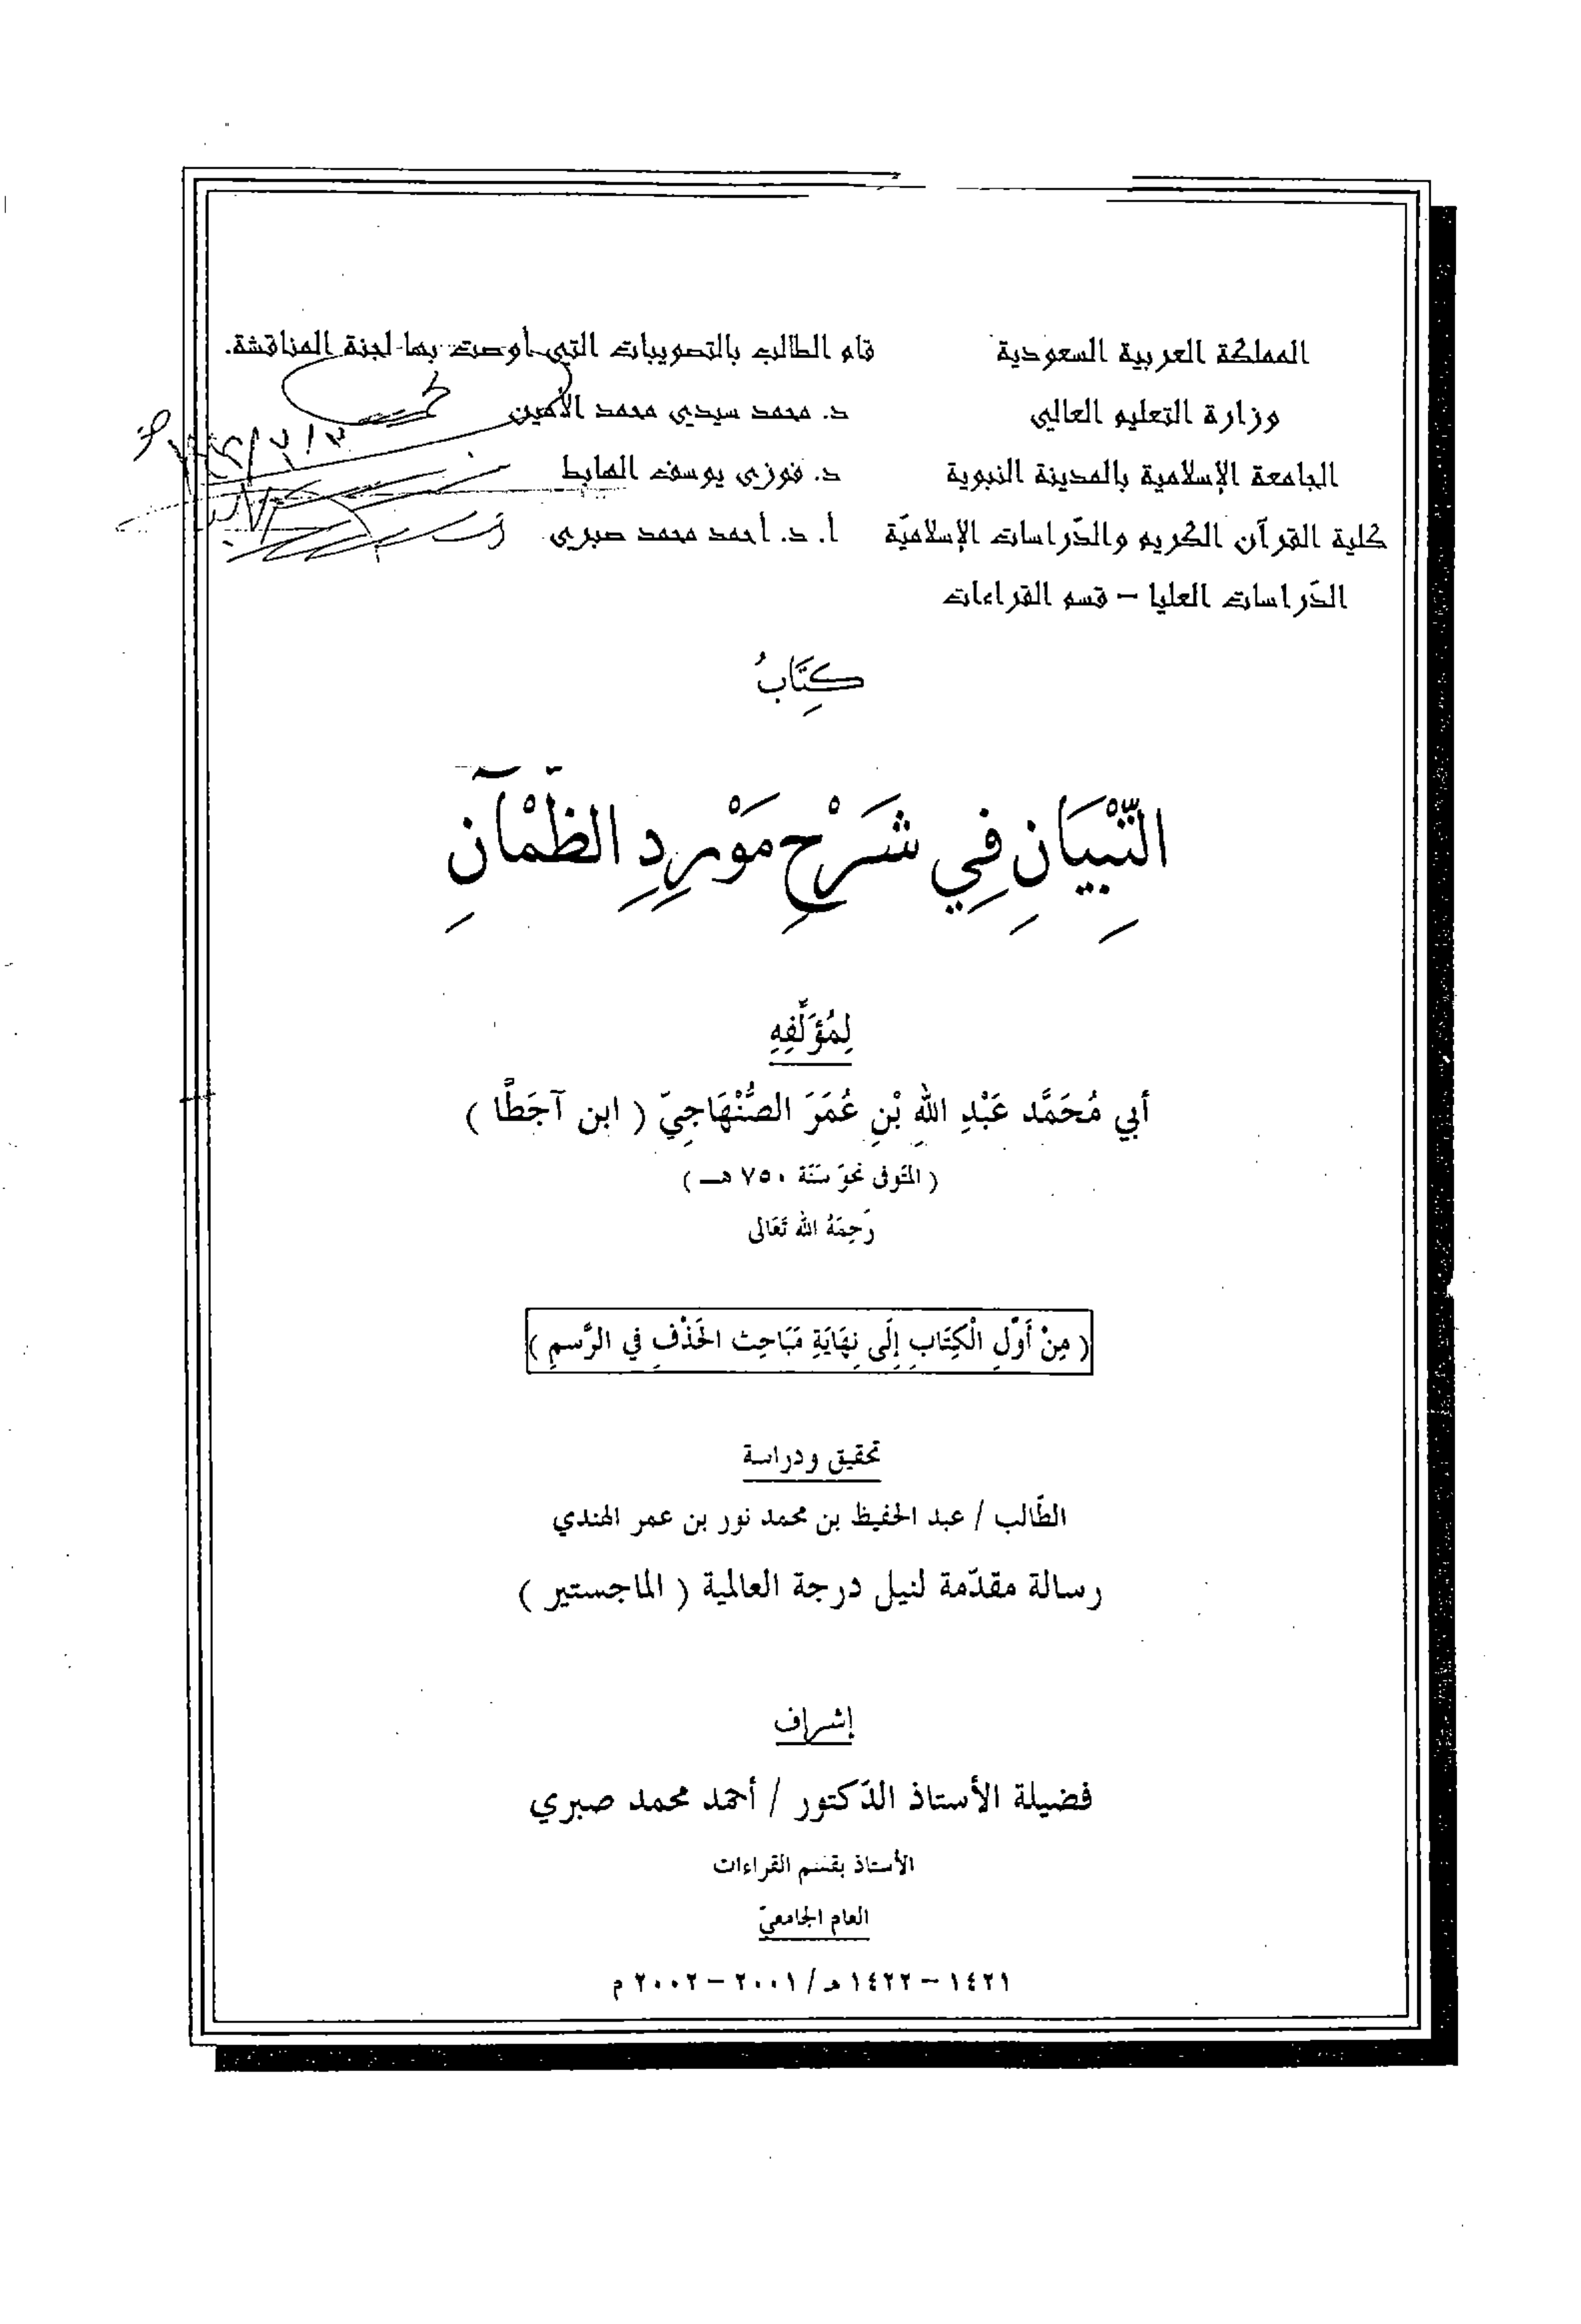 المملكة العربية السعودية
وزارة التعليم العالي
الجامعة الإسلامية بالمدينة النبوية
كلية القرآن الكريم والدّراسات الإسلاميّة
الدّراسات العليا – قسم القراءات
قام الطالب بالتصويبات التي أوصت بها لجنة المناقشة.
د. محمد سيدي محمد الأمين
د. فوزى يوسف الهابط
أ. د. أحمد محمد صبرى
كِتَابُ
التِّبْيَانِ فِي شَرْحِ مَوْرِدِ الظَّمْآنِ
لِمُؤَلِّفِهِ
أبي مُحَمَّد عَبْدِ اللهِ بْنِ عُمَرَ الصُّنْهَاجِيّ ( ابن آجَطَّا )
( المتَوفى نحوَ سَنَة ٧٥٠ هـ )
رَحِمَهُ الله تَعَالى
( مِنْ أَوَّلِ الْكِتَابِ إِلَى نِهَايَةِ مَبَاحِث الحَذْفِ في الرَّسمِ )
تحقيق ودراسة
الطَّالب / عبد الحفيظ بن محمد نور بن عمر الهندي
رسالة مقدّمة لنيل درجة العالمية ( الماجستير )
إشراف
فضيلة الأستاذ الدّكتور / أحمد محمد صبري
الأستاذ بقسم القراءات
العام الجامعيّ
١٤٢١ – ١٤٢٢ هـ / ٢٠٠١ – ٢٠٠٢ م